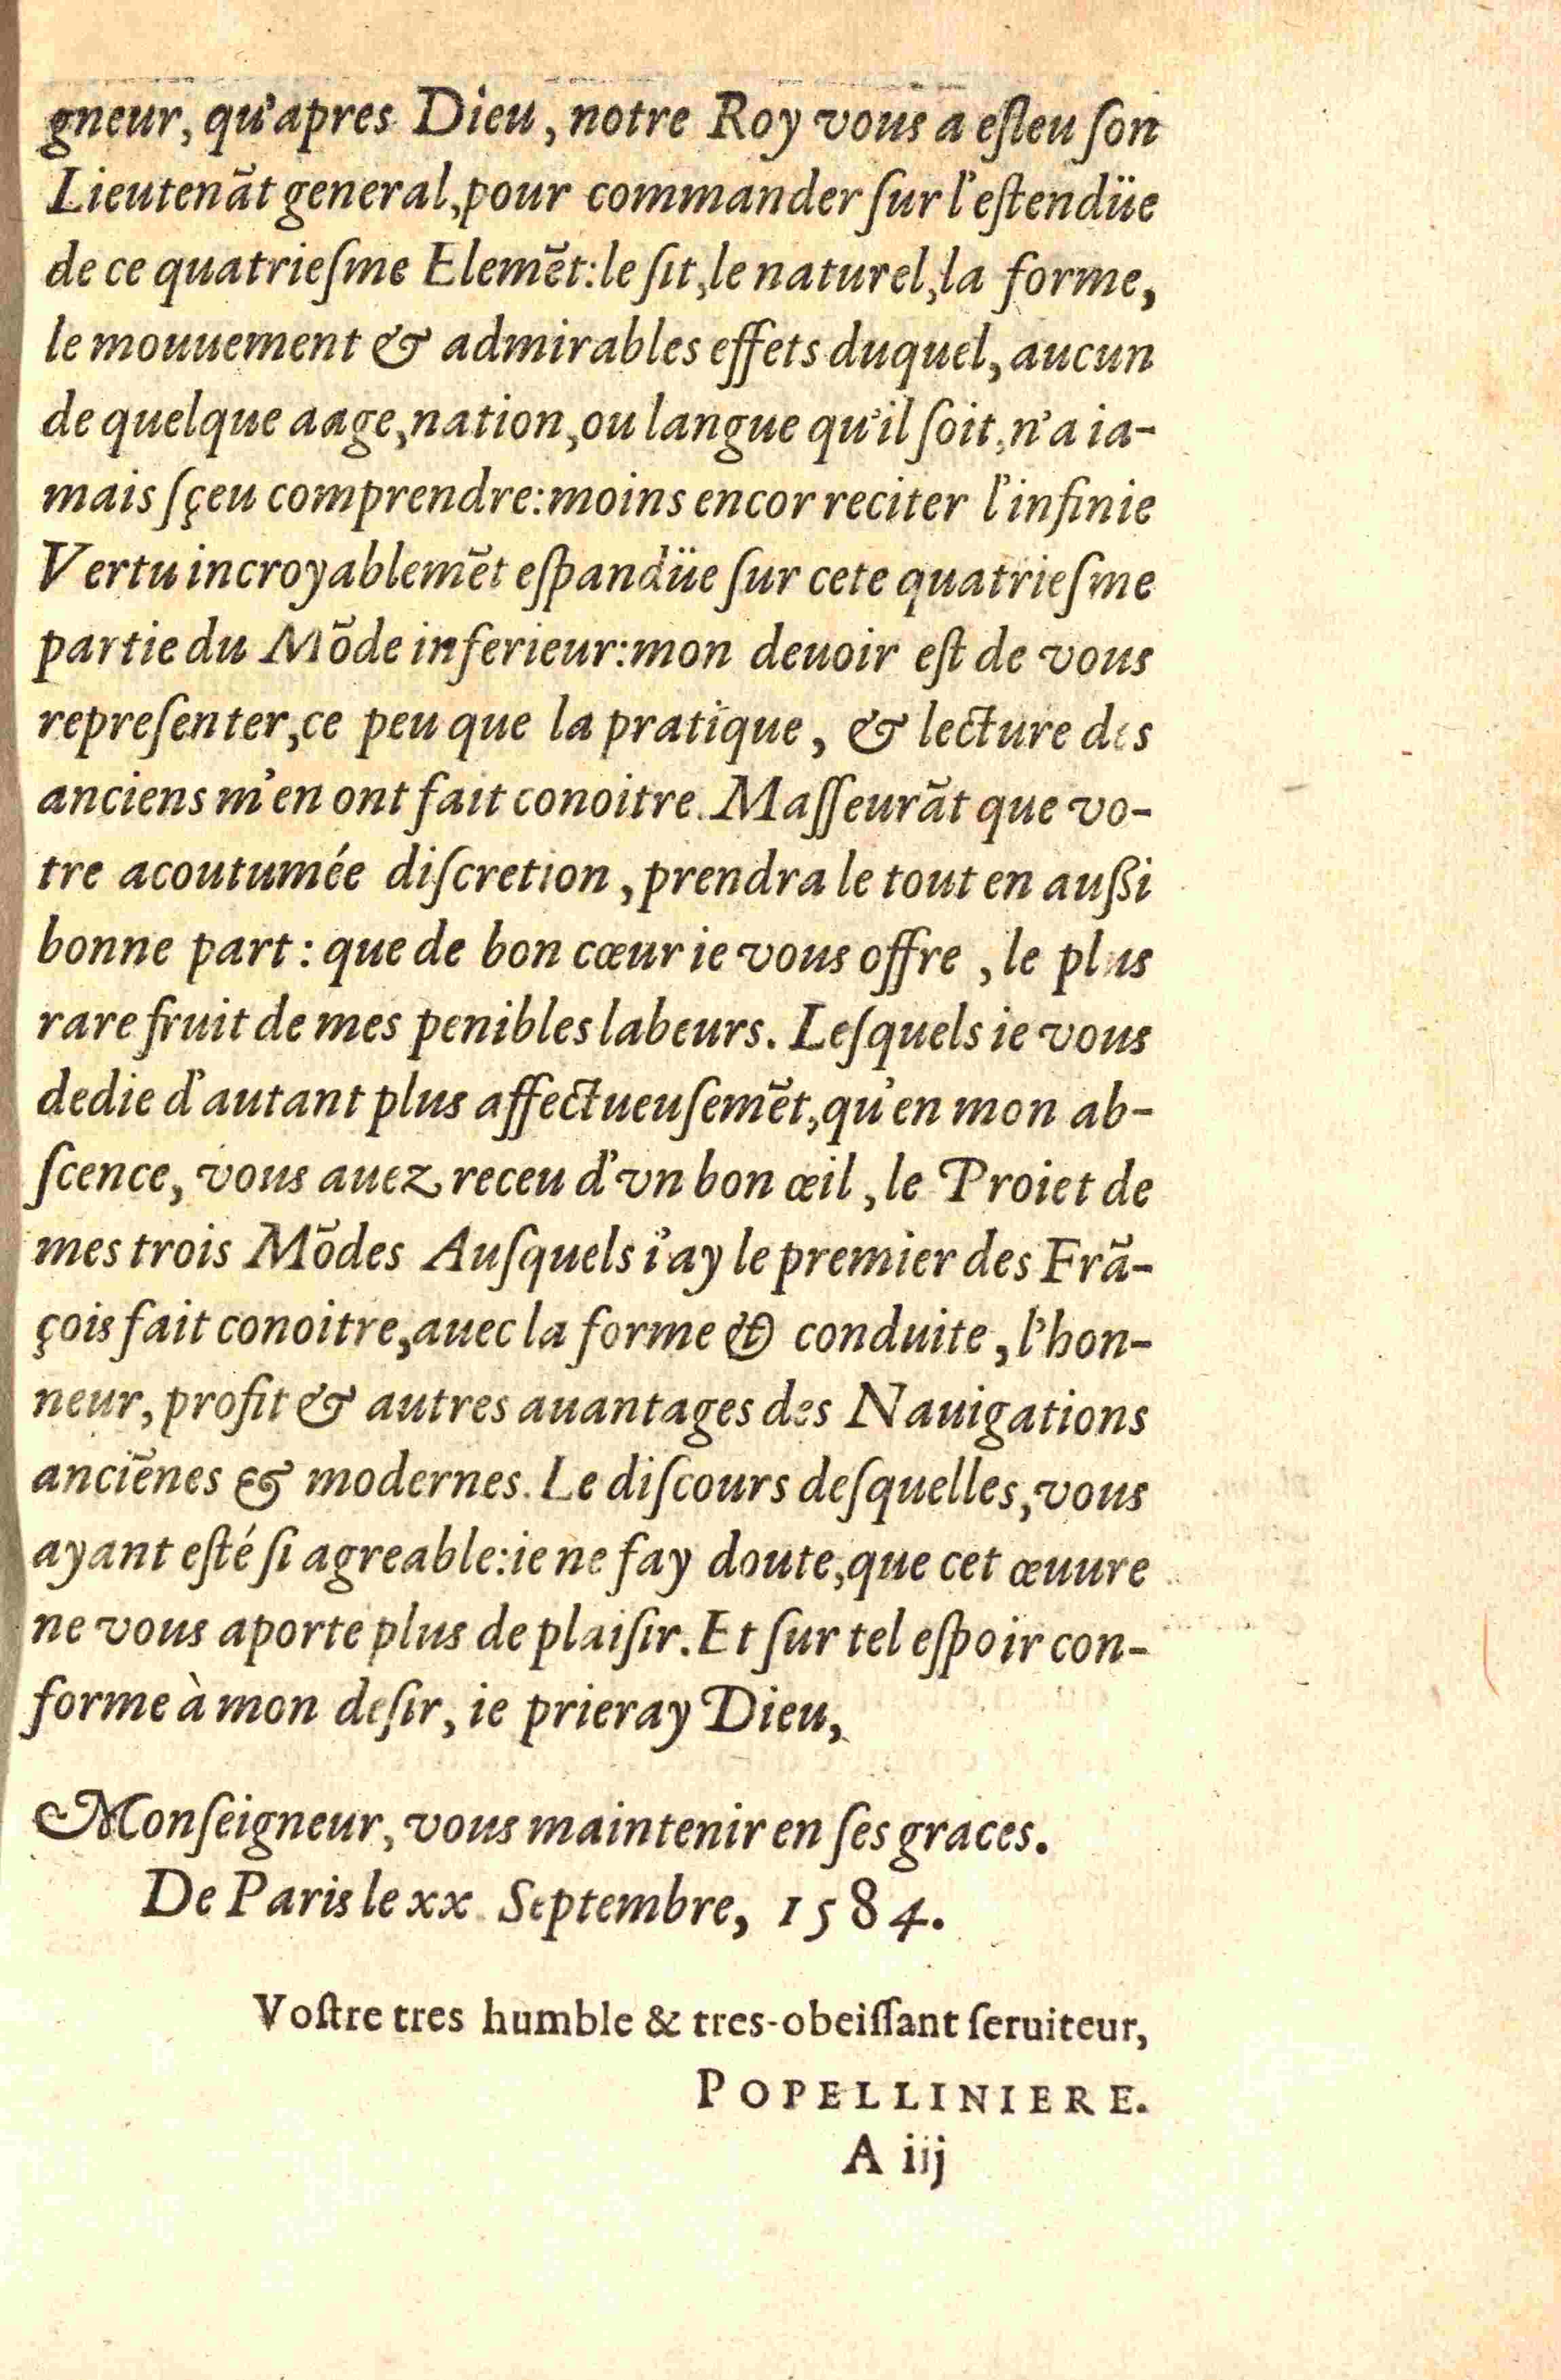 gneur, qu'apres Dieu, notre Roy vous a eſleu ſon
Lieutenãt general, pour commander ſur l'eſtendüe
de ce quatrieſme Elemẽt: le ſit, le naturel, la forme,
le mouuement & admirables effets duquel, aucun
de quelque aage, nation, ou langue qu'il ſoit, n'a ia-
mais ſçeu comprendre: moins encor reciter l'infinie
Vertu incroyablemẽt eſpandüe ſur cete quatrieſme
partie du Mõde inferieur: mon deuoir eſt de vous
repreſenter, ce peu que la pratique, & lecture des
anciens m'en ont fait conoitre. Maſſeurãt que vo-
tre acoutumée diſcretion, prendra le tout en auſſi
bonne part: que de bon cœur ie vous offre, le plus
rare fruit de mes penibles labeurs. Leſquels ie vous
dedie d'autant plus affectueuſemẽt, qu'en mon ab-
ſcence, vous auez receu d'vn bon œil, le Proiet de
mes trois Mõdes Auſquels i'ay le premier des Frã-
çois fait conoitre, auec la forme & conduite, l'hon-
neur, profit & autres auantages des Nauigations
anciẽnes & modernes. Le diſcours deſquelles, vous
ayant eſté ſi agreable: ie ne fay doute, que cet œuure
ne vous aporte plus de plaiſir. Et ſur tel eſpoir con-
forme à mon deſir, ie prieray Dieu,
Monſeigneur, vous maintenir en ſes graces.
De Paris le xx. Septembre, 1584.
Voſtre tres humble & tres-obeiſſant ſeruiteur,
POPELLINIERE.
A iij